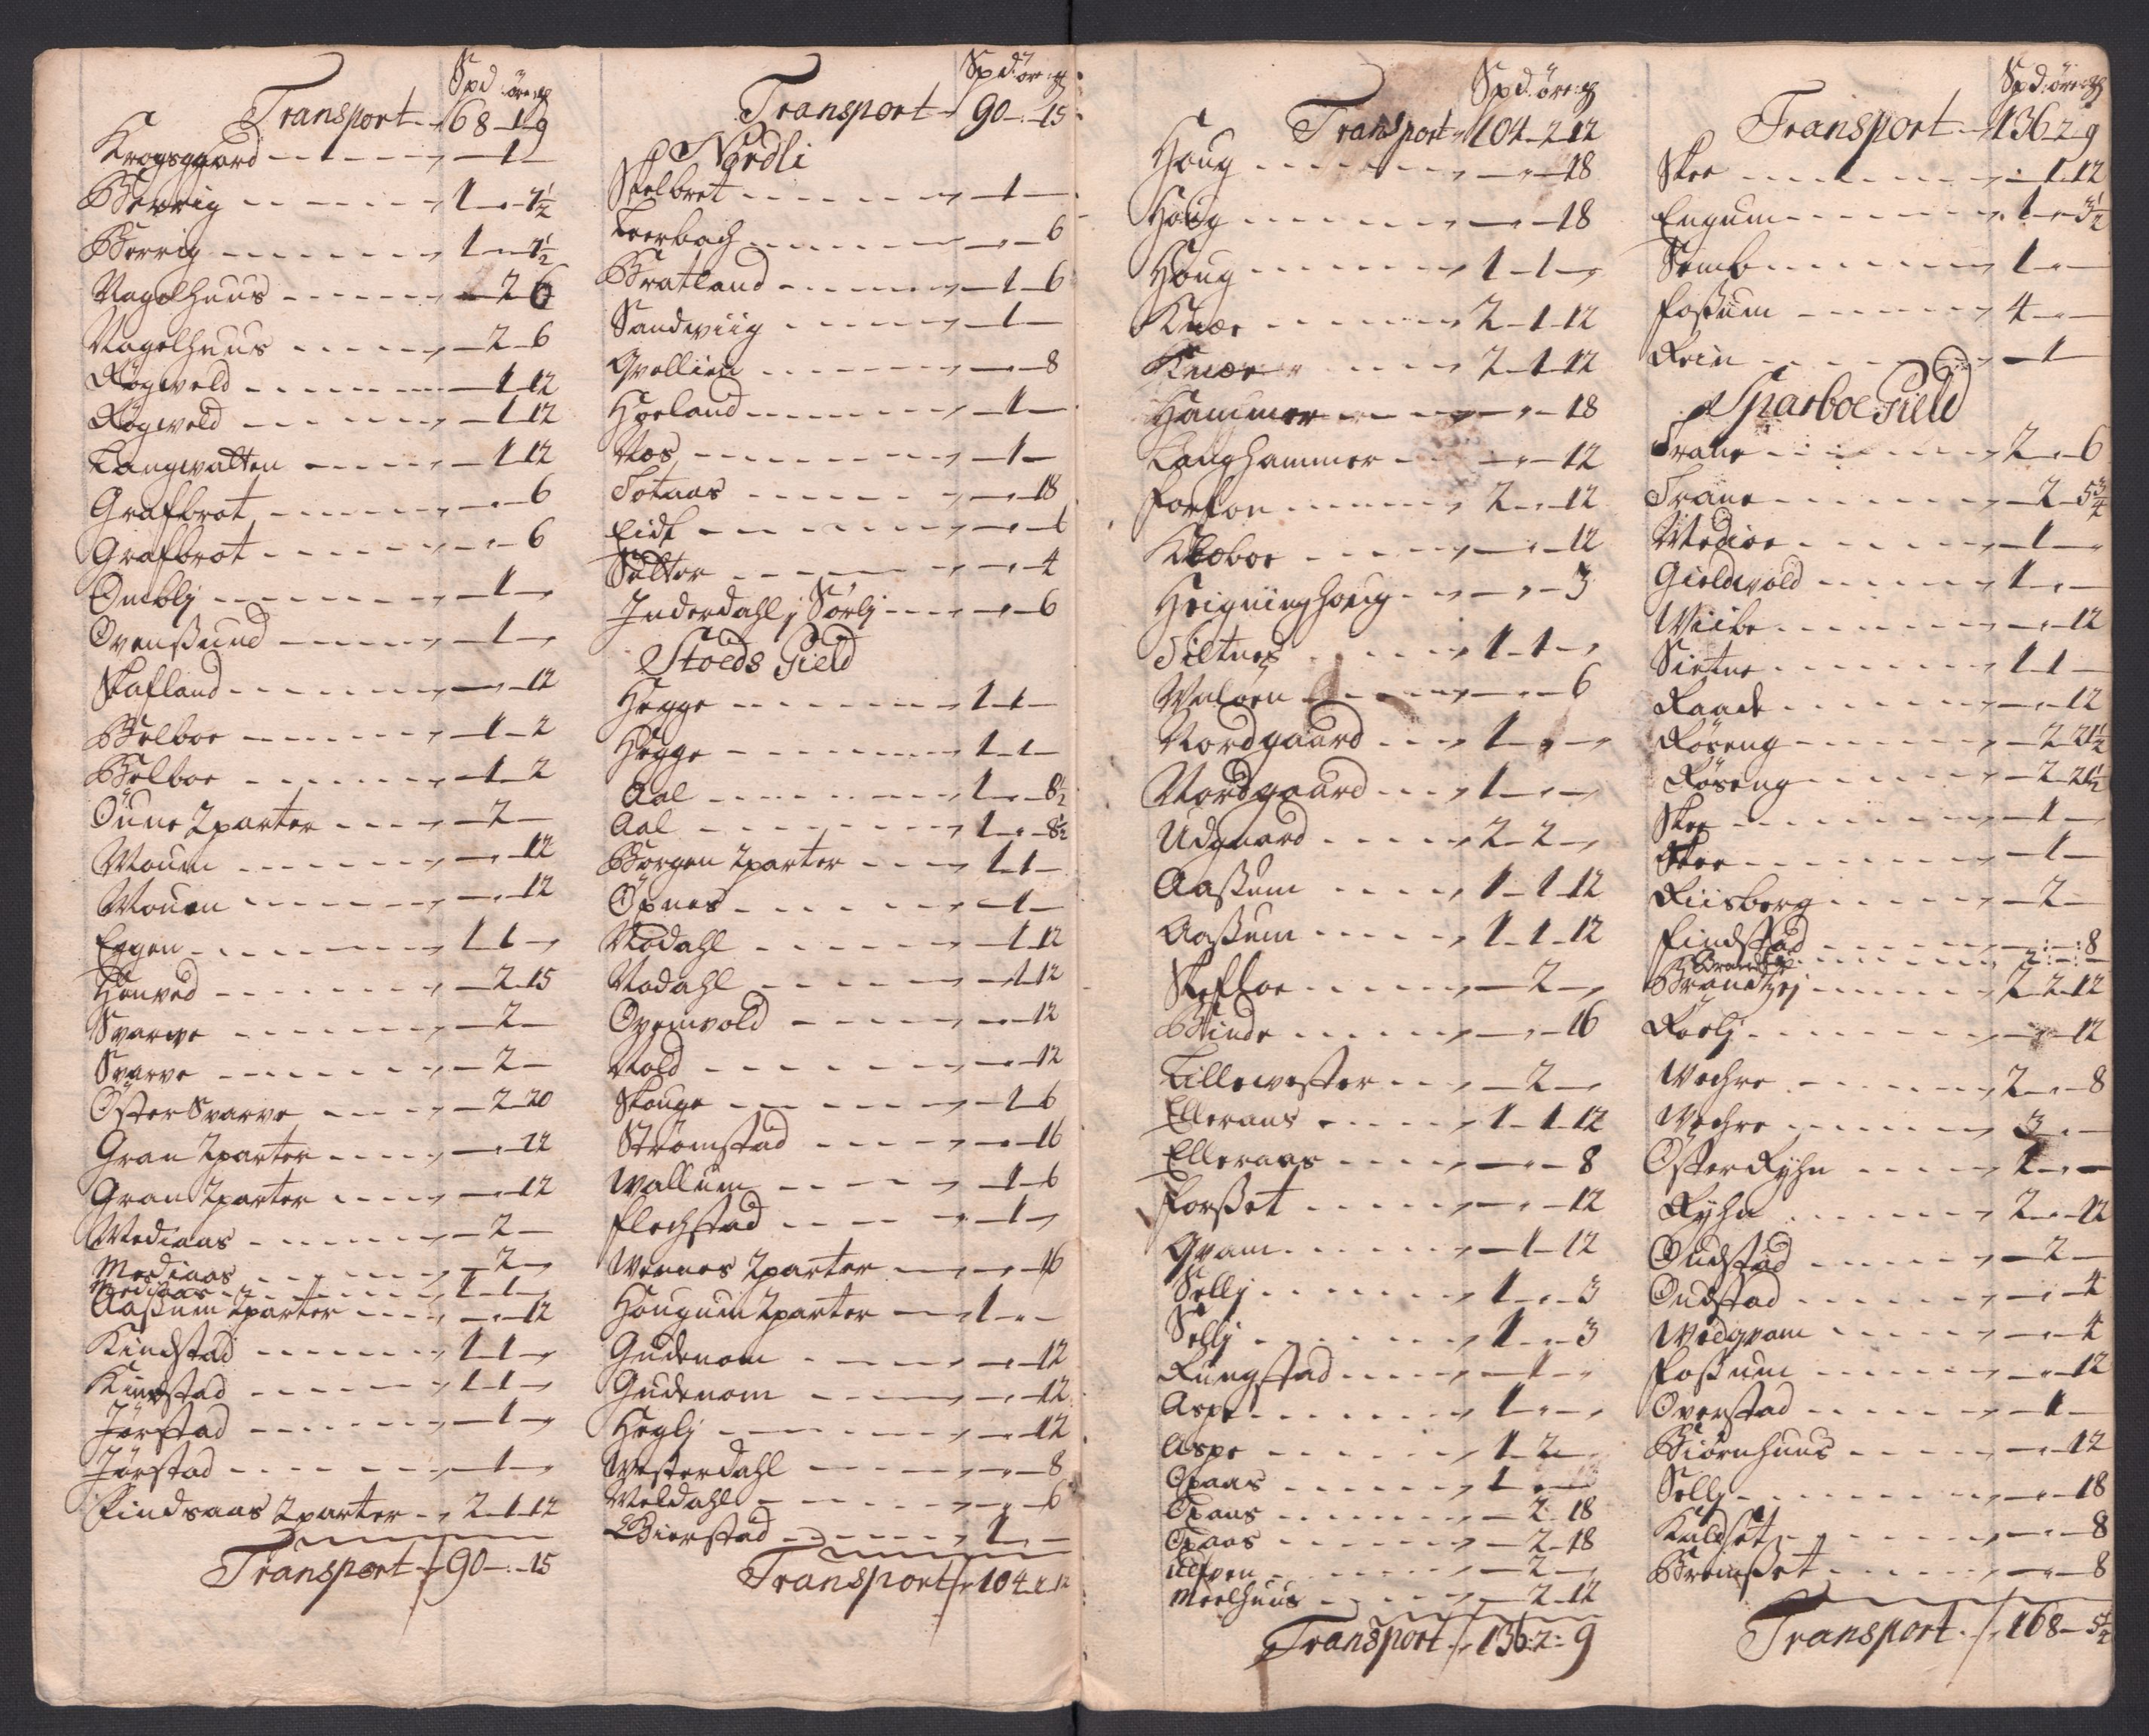 Spd öre
Transport 68-1-9
Krogsgaard - 1 -
Berrig 1 - 7½
Berrig 1 - 7½
Nagelhuus - 2 6
Nagelhuus - 2 6
Røgweld - 1 12
Røgweld - 1 12
Langwatten - 1 12
Grafbrot - 6
Grafbrot - 6
Ombly - 1 -
Ovensund - 1 -
Skafland - 12
Belboe - 1 - 2
Belboe - 1 - 2
Öune 2parter - 2 -
Mouen - 12
Mouen - 12
Eggen 1 1 -
Hönved - 2 15
Svarve - 2 -
Svarve - 2 -
Öster Svarve - 2 20
Gran 2parter - 12
Gran 2parter - 12
Mediaas - 2 -
Mediaas - 2 -
Mediaas 1 1 -
Aaßum 2parter - 12
Kindstad 1 1 -
Kindstad 1 1 -
Jørstad - 1 -
Jørstad - 1 -
Findsaas 2parter 2-1-12
Transport 90 - 15
Spd: öre
Transport 90 - 15
Nordli
Skelbret - 1 -
Leerbach - 6
Bratland - 1 - 6
Sandwiig - 1 -
Qvellien - 8
Hoeland - 1 -
Noes - 1 -
Totaas - 18
Eidt - 6
Selter - 4
Inderdahl j Sørlj - 6
Stoeds Gield
Hegge 1 1 -
Hegge 1 1 -
Aal 1 - 8½
Aal 1 - 8½
Borgen 2parter 1 1 -
Öxnes - 1 -
Nodahl - 1 12
Nodahl - 1 12
Ovenvold - 12
Vold - 12
Skouge - 1 6
Strömstad - 16
Wallum - 1 6
Flechstad - 1 -
Wennes 2parter - 16
Hougum 2parter 1 -
Gudenom - 12
Gudenom - 12
Heglj - 12
Westerdahl - 8
Meldahl - 6
Bierstad 1 -
Transport 104-2-12
Spd: öre
Transport 104-2-12
Houg - 18
Houg - 18
Houg 1-1-
Knæe 2-1-12
Knæe 2-1-12
Hammer - 18
Langhammer - 12
Forfon 2 - 12
Klæboe - 12
Heigninghoug - 3
Tiltnes 1 1 -
Waløen - 6
Nordgaard 1 -
Nordgaard 1 -
Udgaard 2-2-
Aaßum 1-1-12
Aaßum 1-1-12
Skefloe - 2 -
Binde - 16
Lillewester - 2 -
Elleraas 1-1-12
Elleraas - 8
Forßet - 12
Qvam - 1 - 12
Sellj 1 - 3
Sellj 1 - 3
Rungstad - 1 -
Aspe 1 -
Aspe 1-2-
Oxaas 1
Oxaas - 2 18
Oxaas - 2-18
Ulfven - 2 -
Meelhuus - 2 12
Transport 136:2:9
Spd: öre
Transport 136-2-9
Skee - 1 12
Engum 1 - 3½
Semb 1 -
Foßum 4 -
Rein - 1
Sparboe Gield
Trane 2 - 6
Trane - 2 5¾
Medioe - 1 -
Gieldvold 1 -
Wiibe - 12
Sirtne 1 1 -
Raade - 12
Røseng - 2 21½
Røseng - 2 21½
Skee - 1 -
Skee - 1 -
Riisberg - 2 -
Findstad - 8
Brandtzej 2 -
Brandtzej 2-2-12
Roelj - 12
Wechre 2 - 8
Wechre 3 -
Öster Ryhn 1 -
Ryhn 2 - 12
Oudstad - 2 -
Oudstad - 4
Wedqvam - 4
Foßum - 12
Overstad - 1 -
Biørnhuus - 12
Sellj - 18
Kaldset - 8
Bremßet - 8
Transport 168 - 5¼